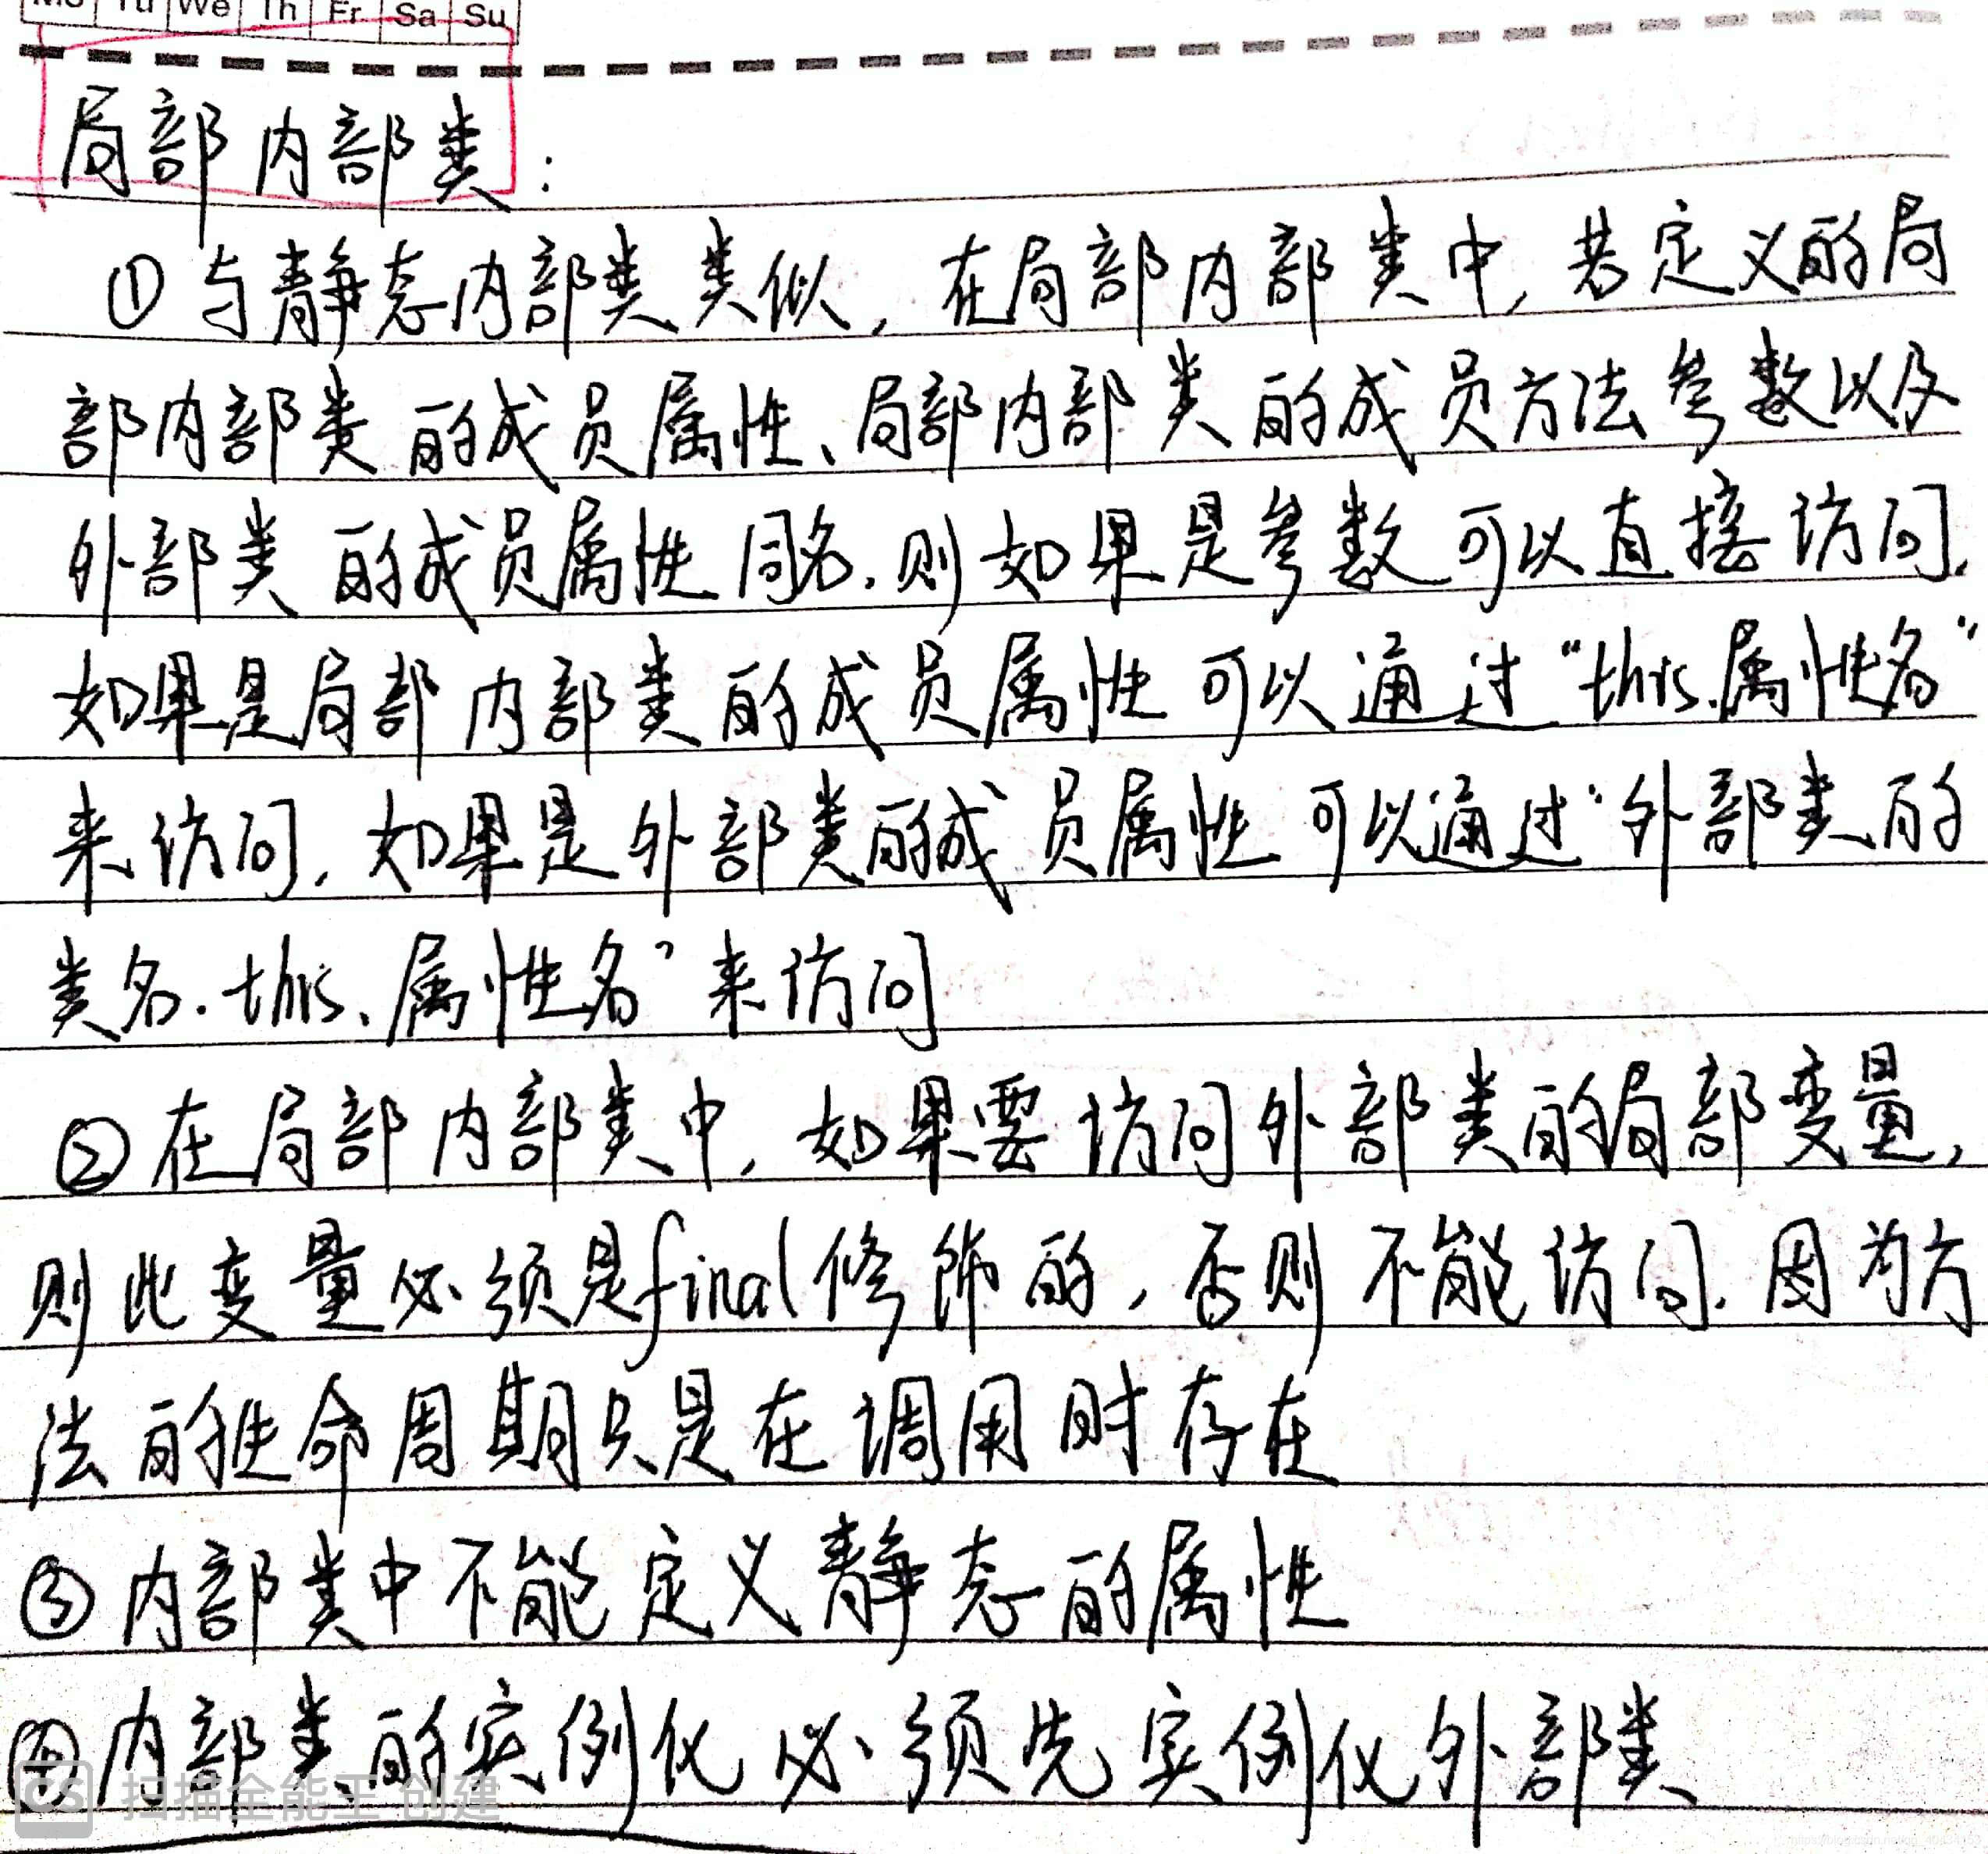 Mo Tu We Th Fr Sa Su
局部内部类:
①与静态内部类类似,在局部内部类中,若定义的局
部内部类的成员属性、局部内部类的成员方法参数以及
外部类的成员属性同名.则如果是参数可以直接访问,
如果是局部内部类的成员属性可以通过“this.属性名”
来访问,如果是外部类的成员属性可以通过“外部类的
类名.this.属性名”来访问
②在局部内部类中,如果要访问外部类的局部变量,
则此变量必须是final修饰的,否则不能访问.因为方
法的生命周期只是在调用时存在
③内部类中不能定义静态的属性
④内部类的实例化必须先实例化外部类
CS 扫描全能王 创建